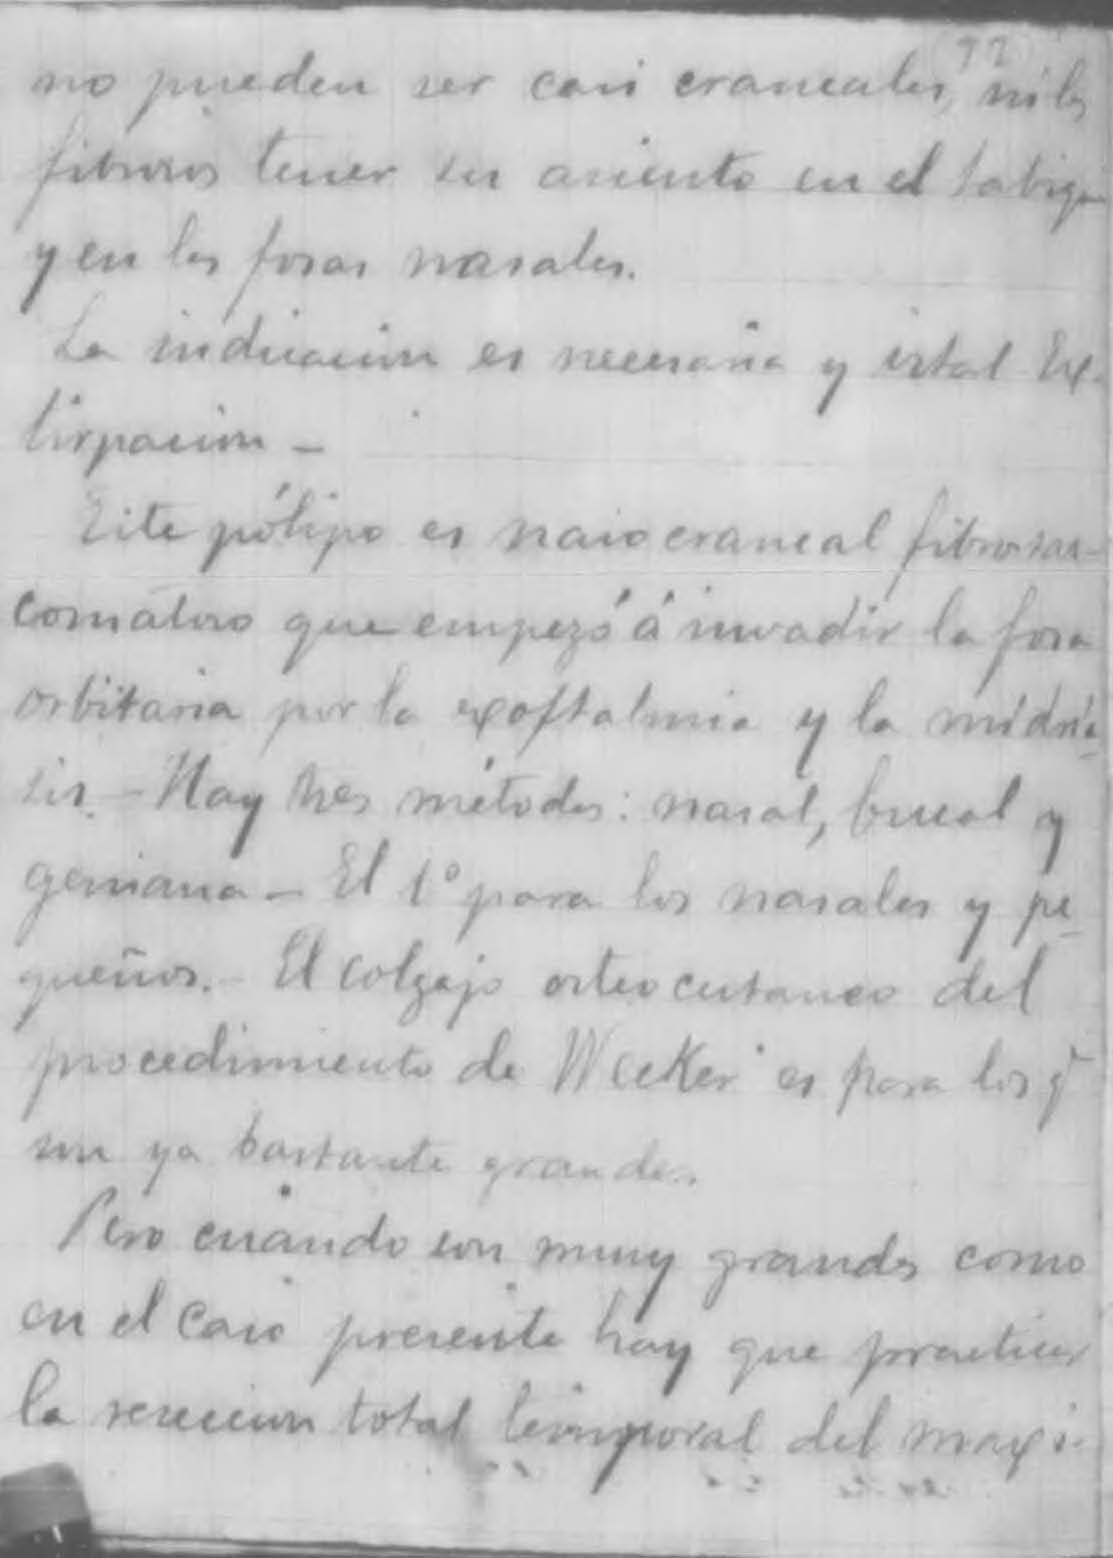 92
no pueden ser casi craneales, ni los
fibrosos tener su asiento en el tabique
y en las fosas nasales.
La indicacion es necesaria y vital Ex-
tirpacion –
Este pólipo es naso craneal fibrosar-
comatoso que empezó á invadir la fosa
orbitaria por la exoftalmia y la midria-
sis. – Hay tres métodos: nasal, bucal y
geniana – El 1º para los nasales y pe-
queños. – El colgajo osteo cutaneo del
procedimiento de Weeker es para los q̃
son ya bastante grandes.
Pero cuando son muy grandes como
en el caso presente hay que practicar
la reseccion total temporal del maxi-